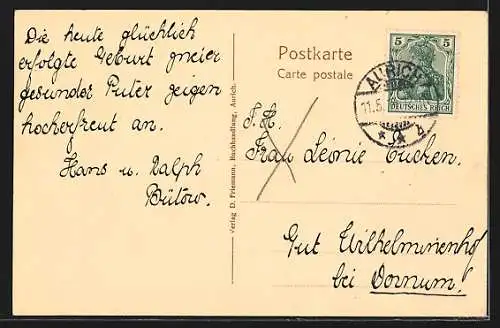 Die heute glücklich
erfolgte Geburt zweier
gesunder Puter zeigen
hocherfreut an.
Hans u. Ralph
Bülow.
Verlag D. Friemann, Buchhandlung, Aurich.
Postkarte
Carte postale
5 5
DEUTSCHES REICH
AURICH
11.5.
* b
Frau Leonie Eucken.
Gut Wilhelminenhof
bei Dornum!